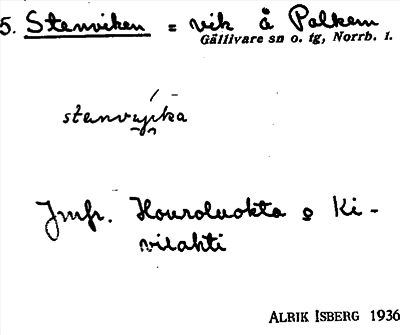 5. Stenviken = vik å Palkem
Gällivare sn o. tg, Norrb. l.
stenvyika
Jmfr. Houroluokta o Ki-
vilahti
ALRIK ISBERG 1936